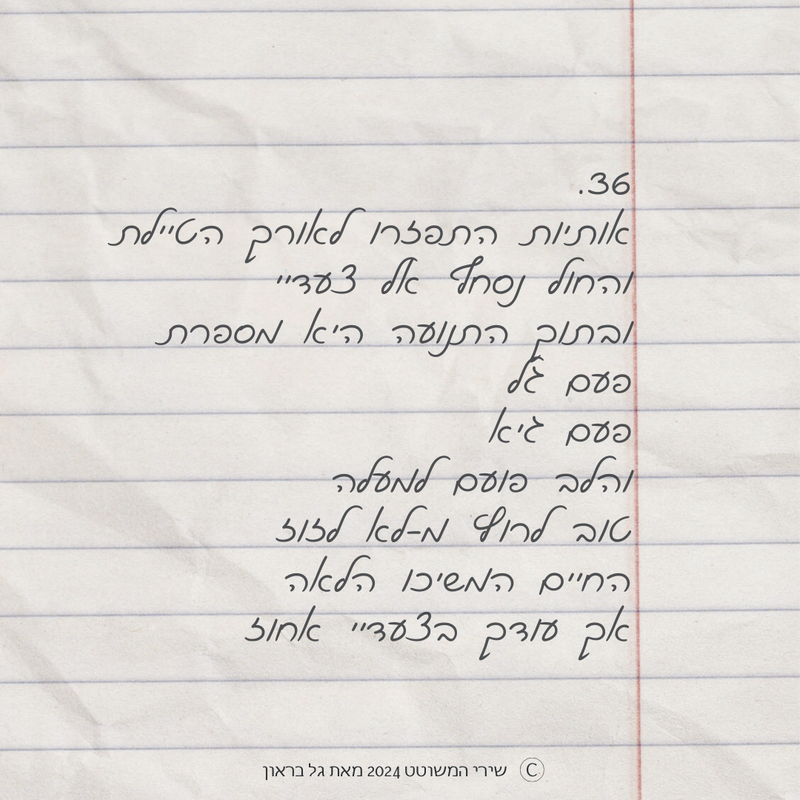 36.
אותיות התפזרו לאורך הטיילת
והחול נסחף אל צעדיי
ובתוך התנועה היא מספרת
פעם גל
פעם גיא
והלב פועם למעלה
טוב לרוץ מ-לא לזוז
החיים המשיכו הלאה
אך עודך בצעדיי אחוז
© שירי המשוטט 2024 מאת גל בראון